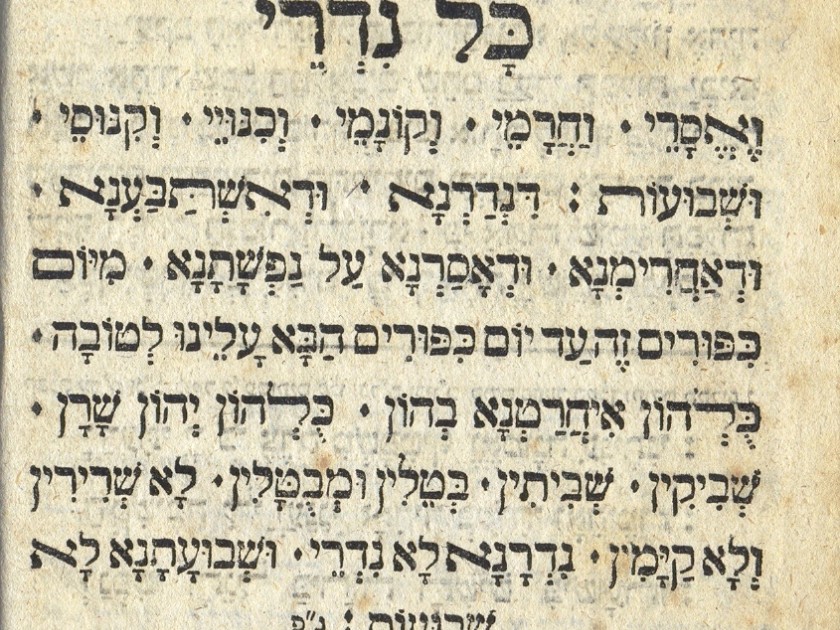 כָּל נִדְרֵי
וֶאֱסָרֵי · וַחֲרָמֵי · וְקוֹנָמֵי · וְכִנּוּיֵי · וְקִנּוּסֵי ·
וּשְׁבוּעוֹת : דִּנְדַרְנָא · וּדְאִשְׁתַּבַּעְנָא ·
וּדְאַחֲרִימְנָא · וּדְאָסַרְנָא עַל נַפְשָׁתָנָא · מִיּוֹם
כִּפּוּרִים זֶה עַד יוֹם כִּפּוּרִים הַבָּא עָלֵינוּ לְטוֹבָה ·
כֻּלְּהוֹן אִיחֲרַטְנָא בְהוֹן · כֻּלְּהוֹן יְהוֹן שָׁרָן ·
שְׁבִיקִין · שְׁבִיתִין · בְּטֵלִין וּמְבֻטָּלִין · לָא שְׁרִירִין
וְלָא קַיָּמִין · נִדְרָנָא לָא נִדְרֵי · וּשְׁבוּעָתָנָא לָא
שבועות : ג״פ